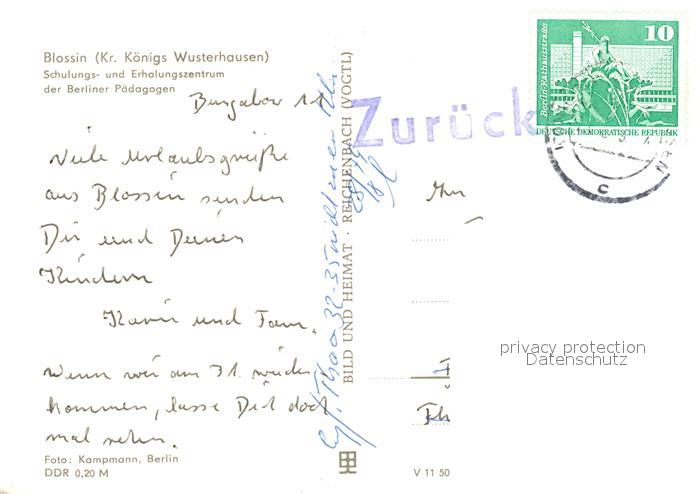 Blossin (Kr. Königs Wusterhausen)
Schulungs- und Erholungszentrum
der Berliner Pädagogen
Viele Urlaubsgrüße
aus Blossin senden
Dir und Deinen
Kindern
Karin und Fam.
Wenn wir am 31. wieder
kommen, lasse Dich doch
mal sehen.
Foto: Kampmann, Berlin
DDR 0,20 M
BILD UND HEIMAT · REICHENBACH (VOGTL)
V 11 50
Zurück
10
Berlin-Rathausstraße
DEUTSCHE DEMOKRATISCHE REPUBLIK
C
privacy protection
Datenschutz